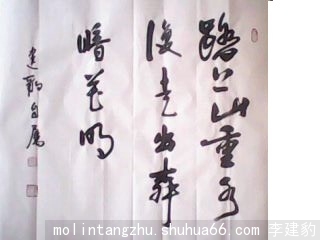 踏上山重水
復走出柳
暗花明
建豹自勵
molintangzhu.shuhua66.com 李建豹